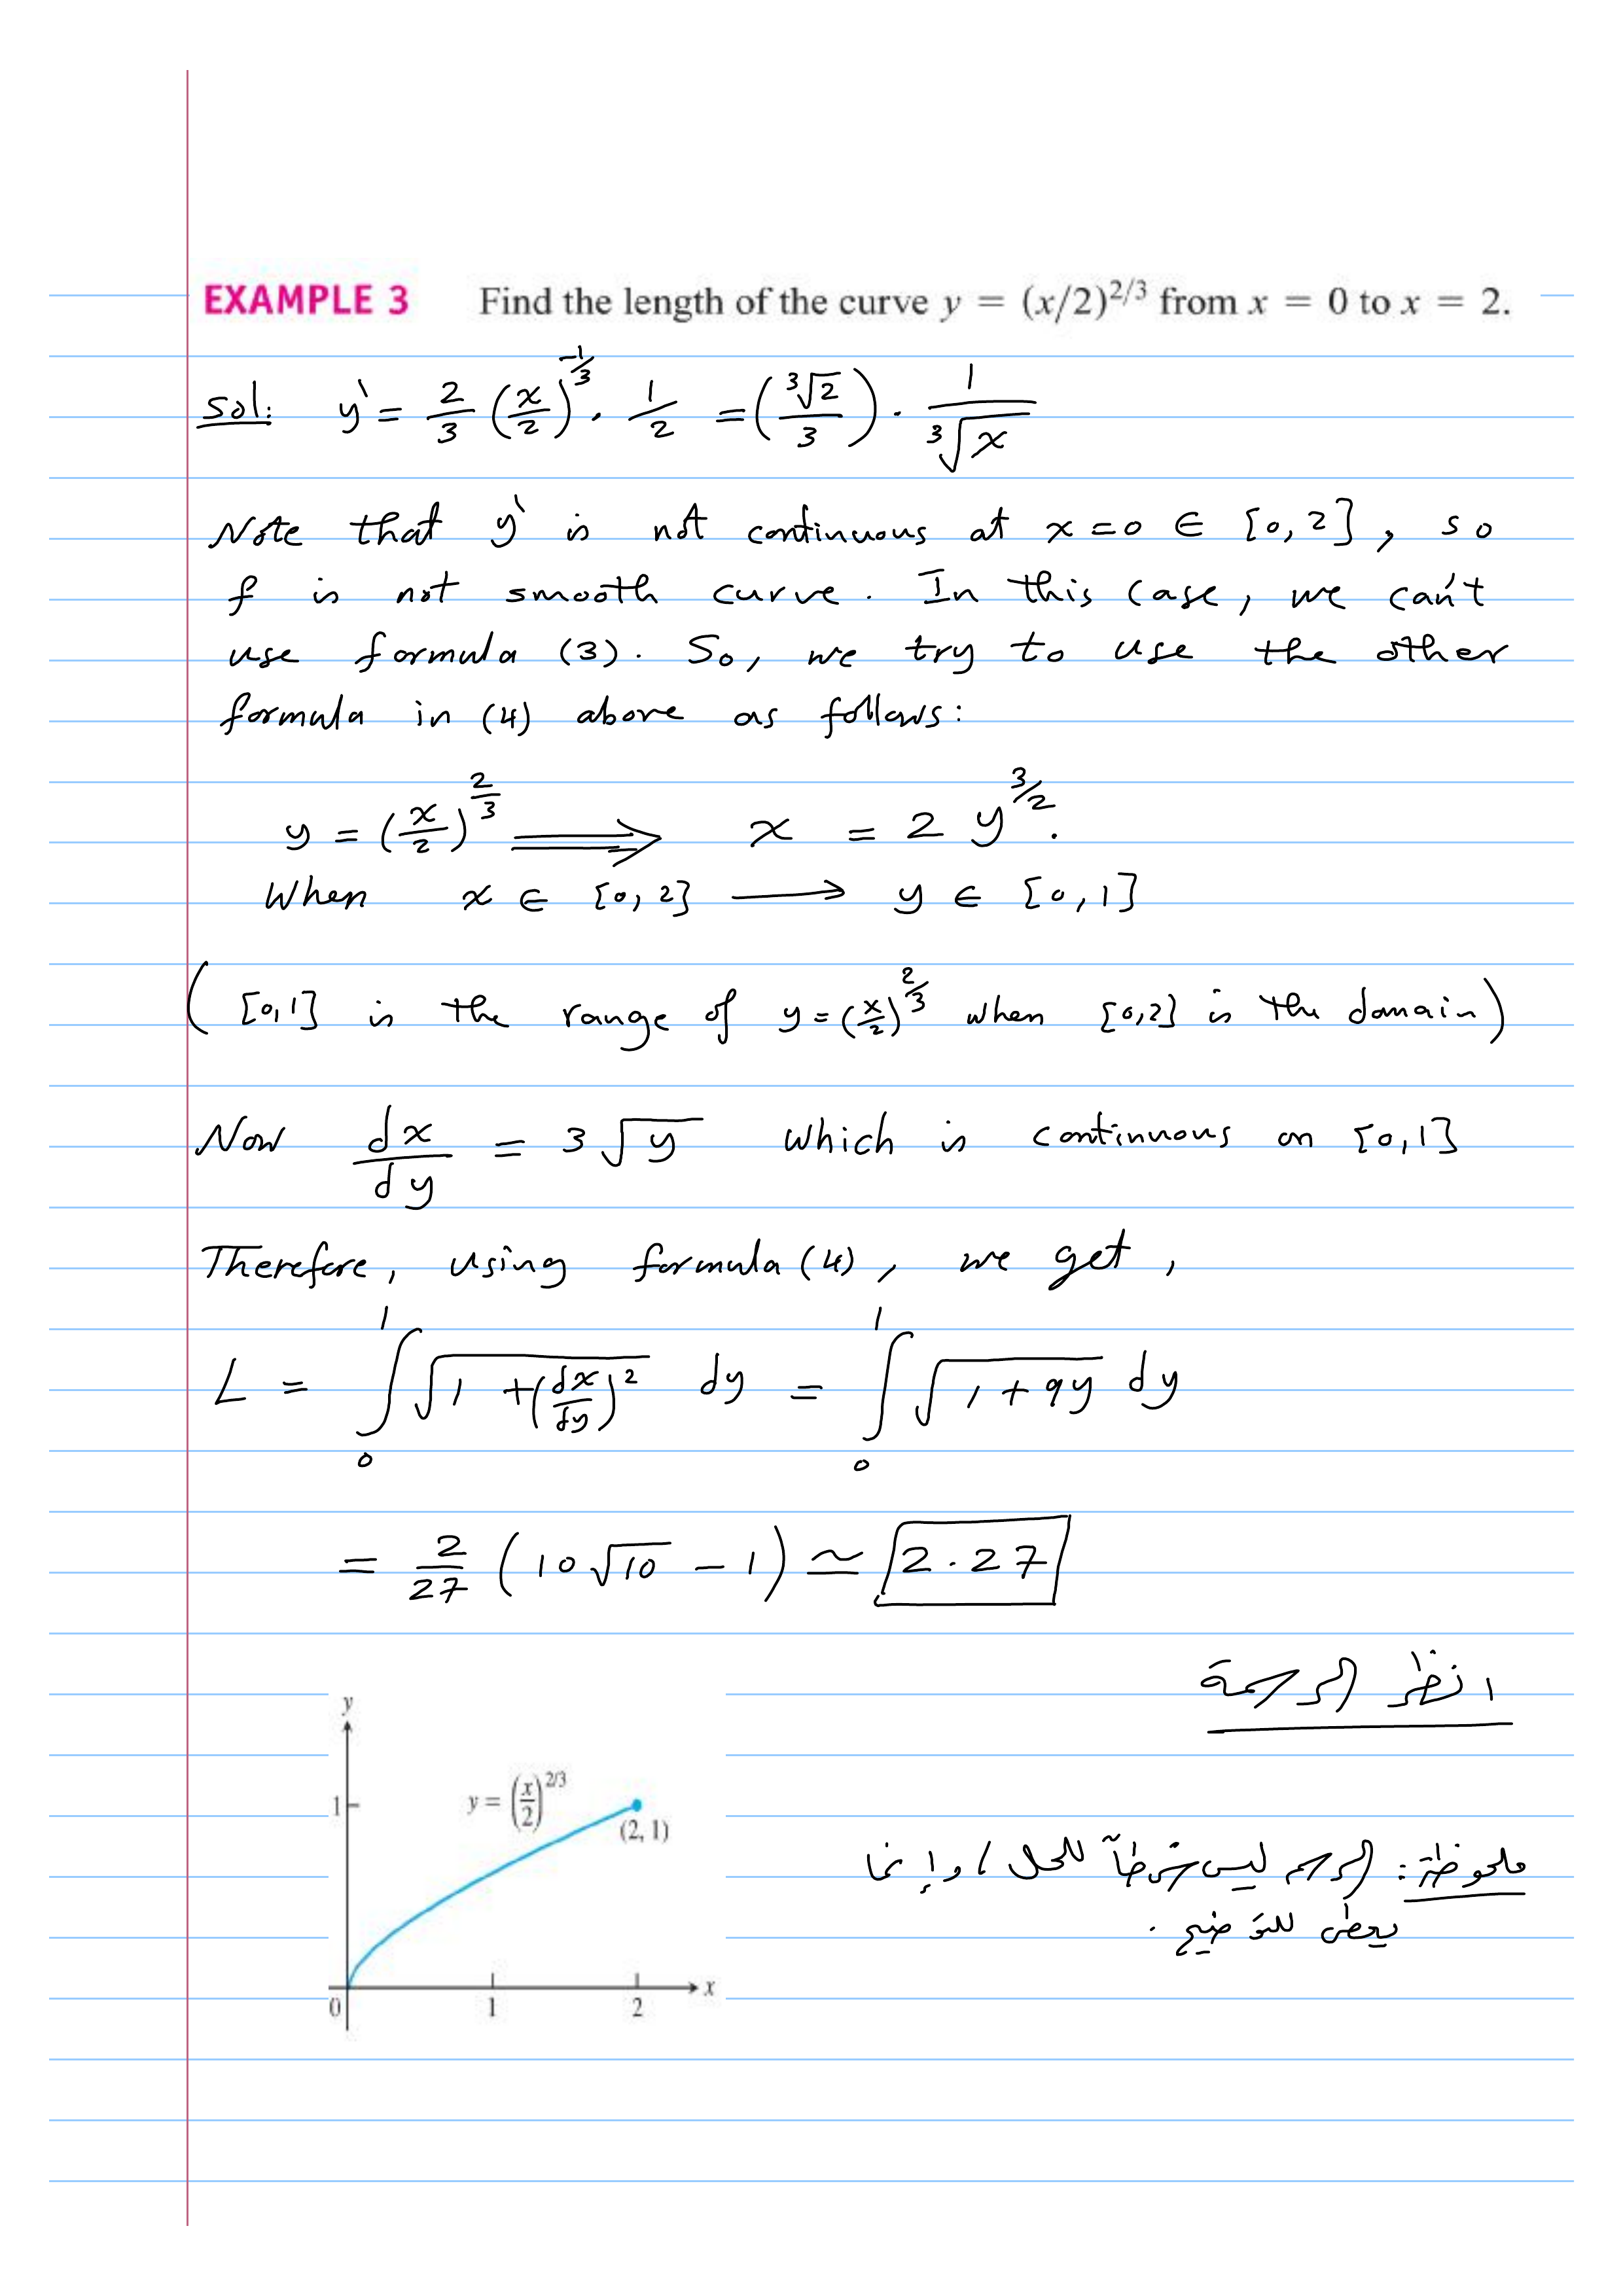 EXAMPLE 3 Find the length of the curve y = (x/2)^{2/3} from x = 0 to x = 2.
sol: y` = 2/3 (x/2)^{-1/3} . 1/2 = (∛2/3) . 1/∛x
Note that y` is not continuous at x=0 ∈ [0,2], so
f is not smooth curve. In this case, we can't
use formula (3). So, we try to use the other
formula in (4) above as follows:
y = (x/2)^{2/3} ⟹ x = 2 y^{3/2}.
When x ∈ [0,2] ⟶ y ∈ [0,1]
([0,1] is the range of y=(x/2)^{2/3} when [0,2] is the domain)
Now dx/dy = 3√y which is continuous on [0,1]
Therefore, using formula (4), we get,
L = ∫_0^1 √(1 + (dx/dy)^2) dy = ∫_0^1 √(1+9y) dy
= 2/27 (10√10 − 1) ≃ 2.27
انظر الرسمة
ملحوظة: الرسم ليس شرطاً للحل، وإنما
يعطى للتوضيح.
y
1
y = (x/2)^{2/3}
(2, 1)
0 1 2 x